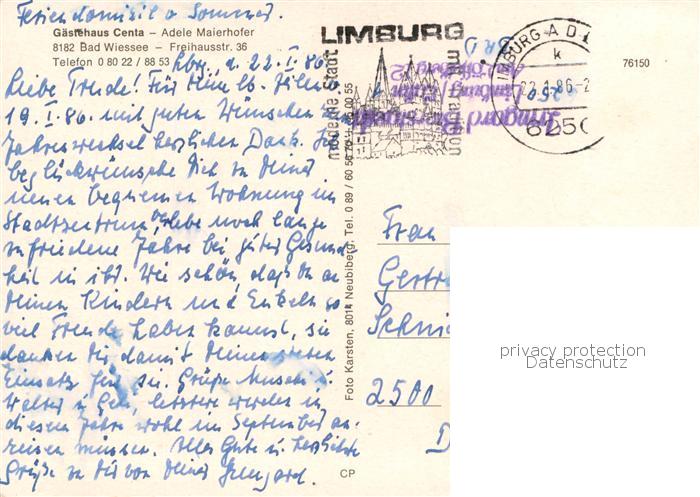 Feriendomizil i. Sommer.
Gästehaus Centa – Adele Maierhofer
8182 Bad Wiessee – Freihausstr. 36
Telefon 0 80 22 / 88 53
Lbg., d. 22.I.86
Liebe Trude! Für Dein lb. Zeilen
19.I.86 mit guten Wünschen z.
Jahreswechsel herzlichen Dank.
beglückwünsche Dich zu Deiner
neuen bequemen Wohnung im
Stadtzentrum, erlebe noch lange
zufriedene Jahre bei guter Gesund-
heit in ihr. Wie schön, daß Du an
Deinen Kindern und Enkeln so
viel Freude haben kannst, sie
danken Dir damit Deinen steten
Einsatz für sie. Grüße u.
Walter u. letztere werden in
diesem Jahre wohl im September an-
reisen müssen. Alles Gute u. herzliche
Grüße zu Dir von Deiner Irmgard.
LIMBURG
moderne Stadt
mit Tradition
LIMBURG A D L
k
22.1.86-2
6250
76150
Irmgard
Foto Karsten, 8014 Neubiberg, Tel. 0 89 / 60 56 70 u. 0 55
Frau
Gertr
Schni
2500
D
CP
privacy protection
Datenschutz